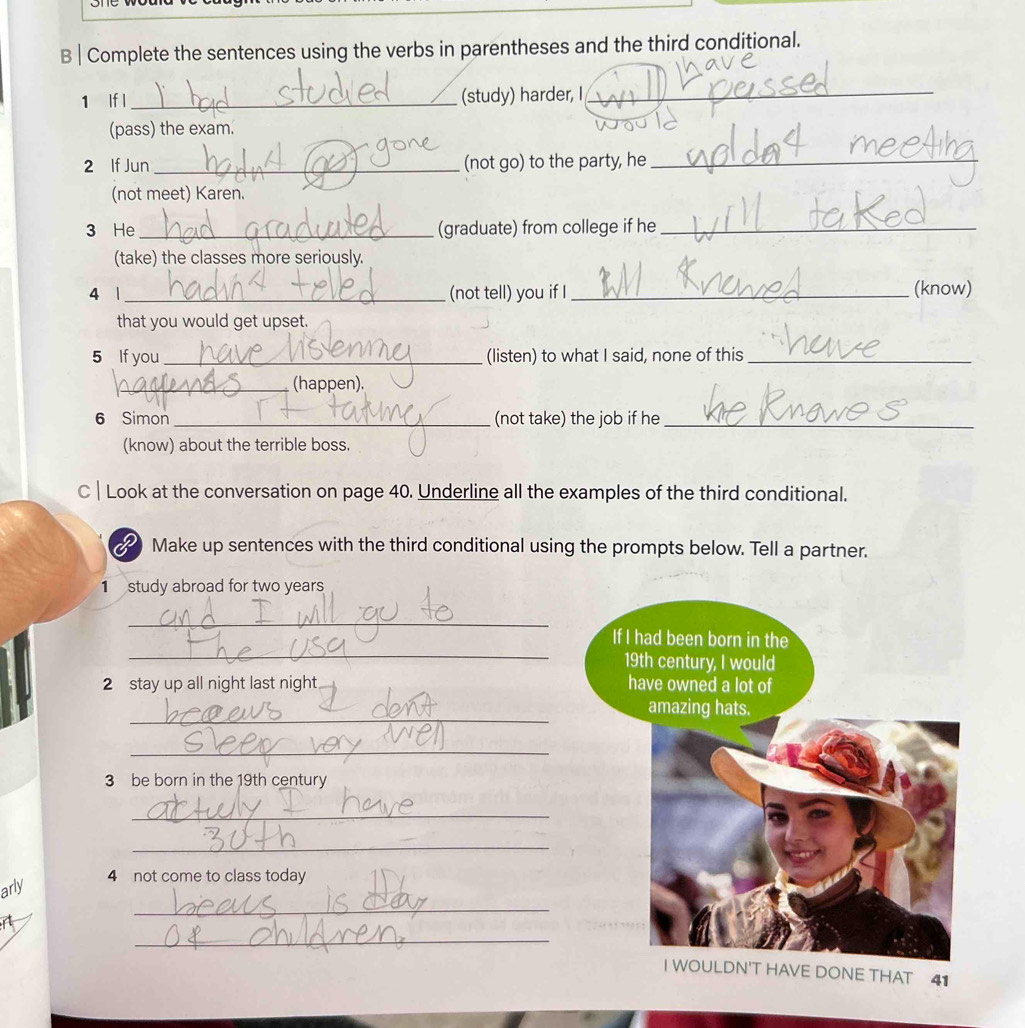 She would've caught the bus on time if
B | Complete the sentences using the verbs in parentheses and the third conditional.
have
1 If I I had studied (study) harder, I will passed
would
(pass) the exam.
gone
2 If Jun hadn't go (not go) to the party, he meeting
(not meet) Karen.
3 He had graduated (graduate) from college if he will taked
(take) the classes more seriously.
4 I hadin't telled (not tell) you if I will Knowed (know)
that you would get upset.
5 If you have listening (listen) to what I said, none of this have
happends (happen).
6 Simon taking (not take) the job if he he Knowes
(know) about the terrible boss.
C | Look at the conversation on page 40. Underline all the examples of the third conditional.
Make up sentences with the third conditional using the prompts below. Tell a partner.
1 study abroad for two years
and I will go to
the usa
2 stay up all night last night
I dent
sleep very well
3 be born in the 19th century
I have
30th
4 not come to class today
becaus is day
of children,
If I had been born in the
19th century, I would
have owned a lot of
amazing hats.
I WOULDN'T HAVE DONE THAT 41
arly